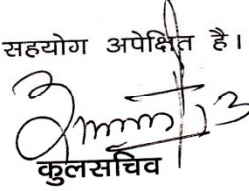 सहयोग अपेक्षित है।
कुलसचिव